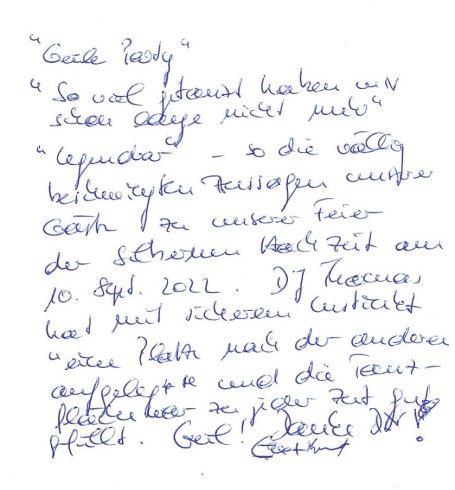 "Geile Party"
"So viel getanzt haben wir
schon lange nicht mehr"
"Legendär" – so die völlig
beschwingten Zusagen unserer
Gäste zu unserer Feier
der silbernen Hochzeit am
10. Sept. 2022. DJ Thomas
hat mit sicherem Instinkt
"eine Platte nach der anderen
aufgelegt" und die Tanz-
fläche war zu jeder Zeit gut
gefüllt. Geil! Danke Dir!